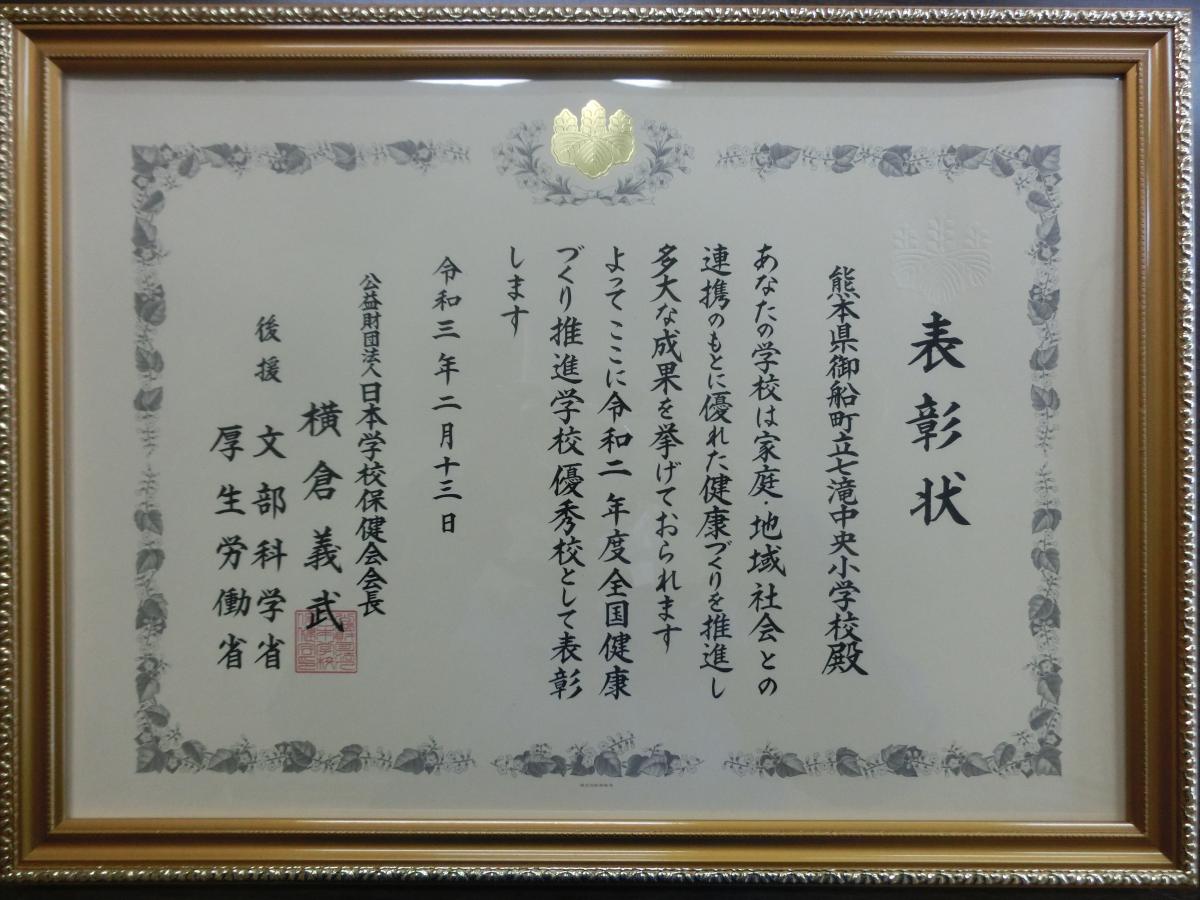 表彰状
熊本県御船町立七滝中央小学校殿
あなたの学校は家庭・地域社会との
連携のもとに優れた健康づくりを推進し
多大な成果を挙げておられます
よってここに令和二年度全国健康
づくり推進学校優秀校として表彰
します
令和三年二月十三日
公益財団法人日本学校保健会会長
横倉義武
後援 文部科学省
厚生労働省